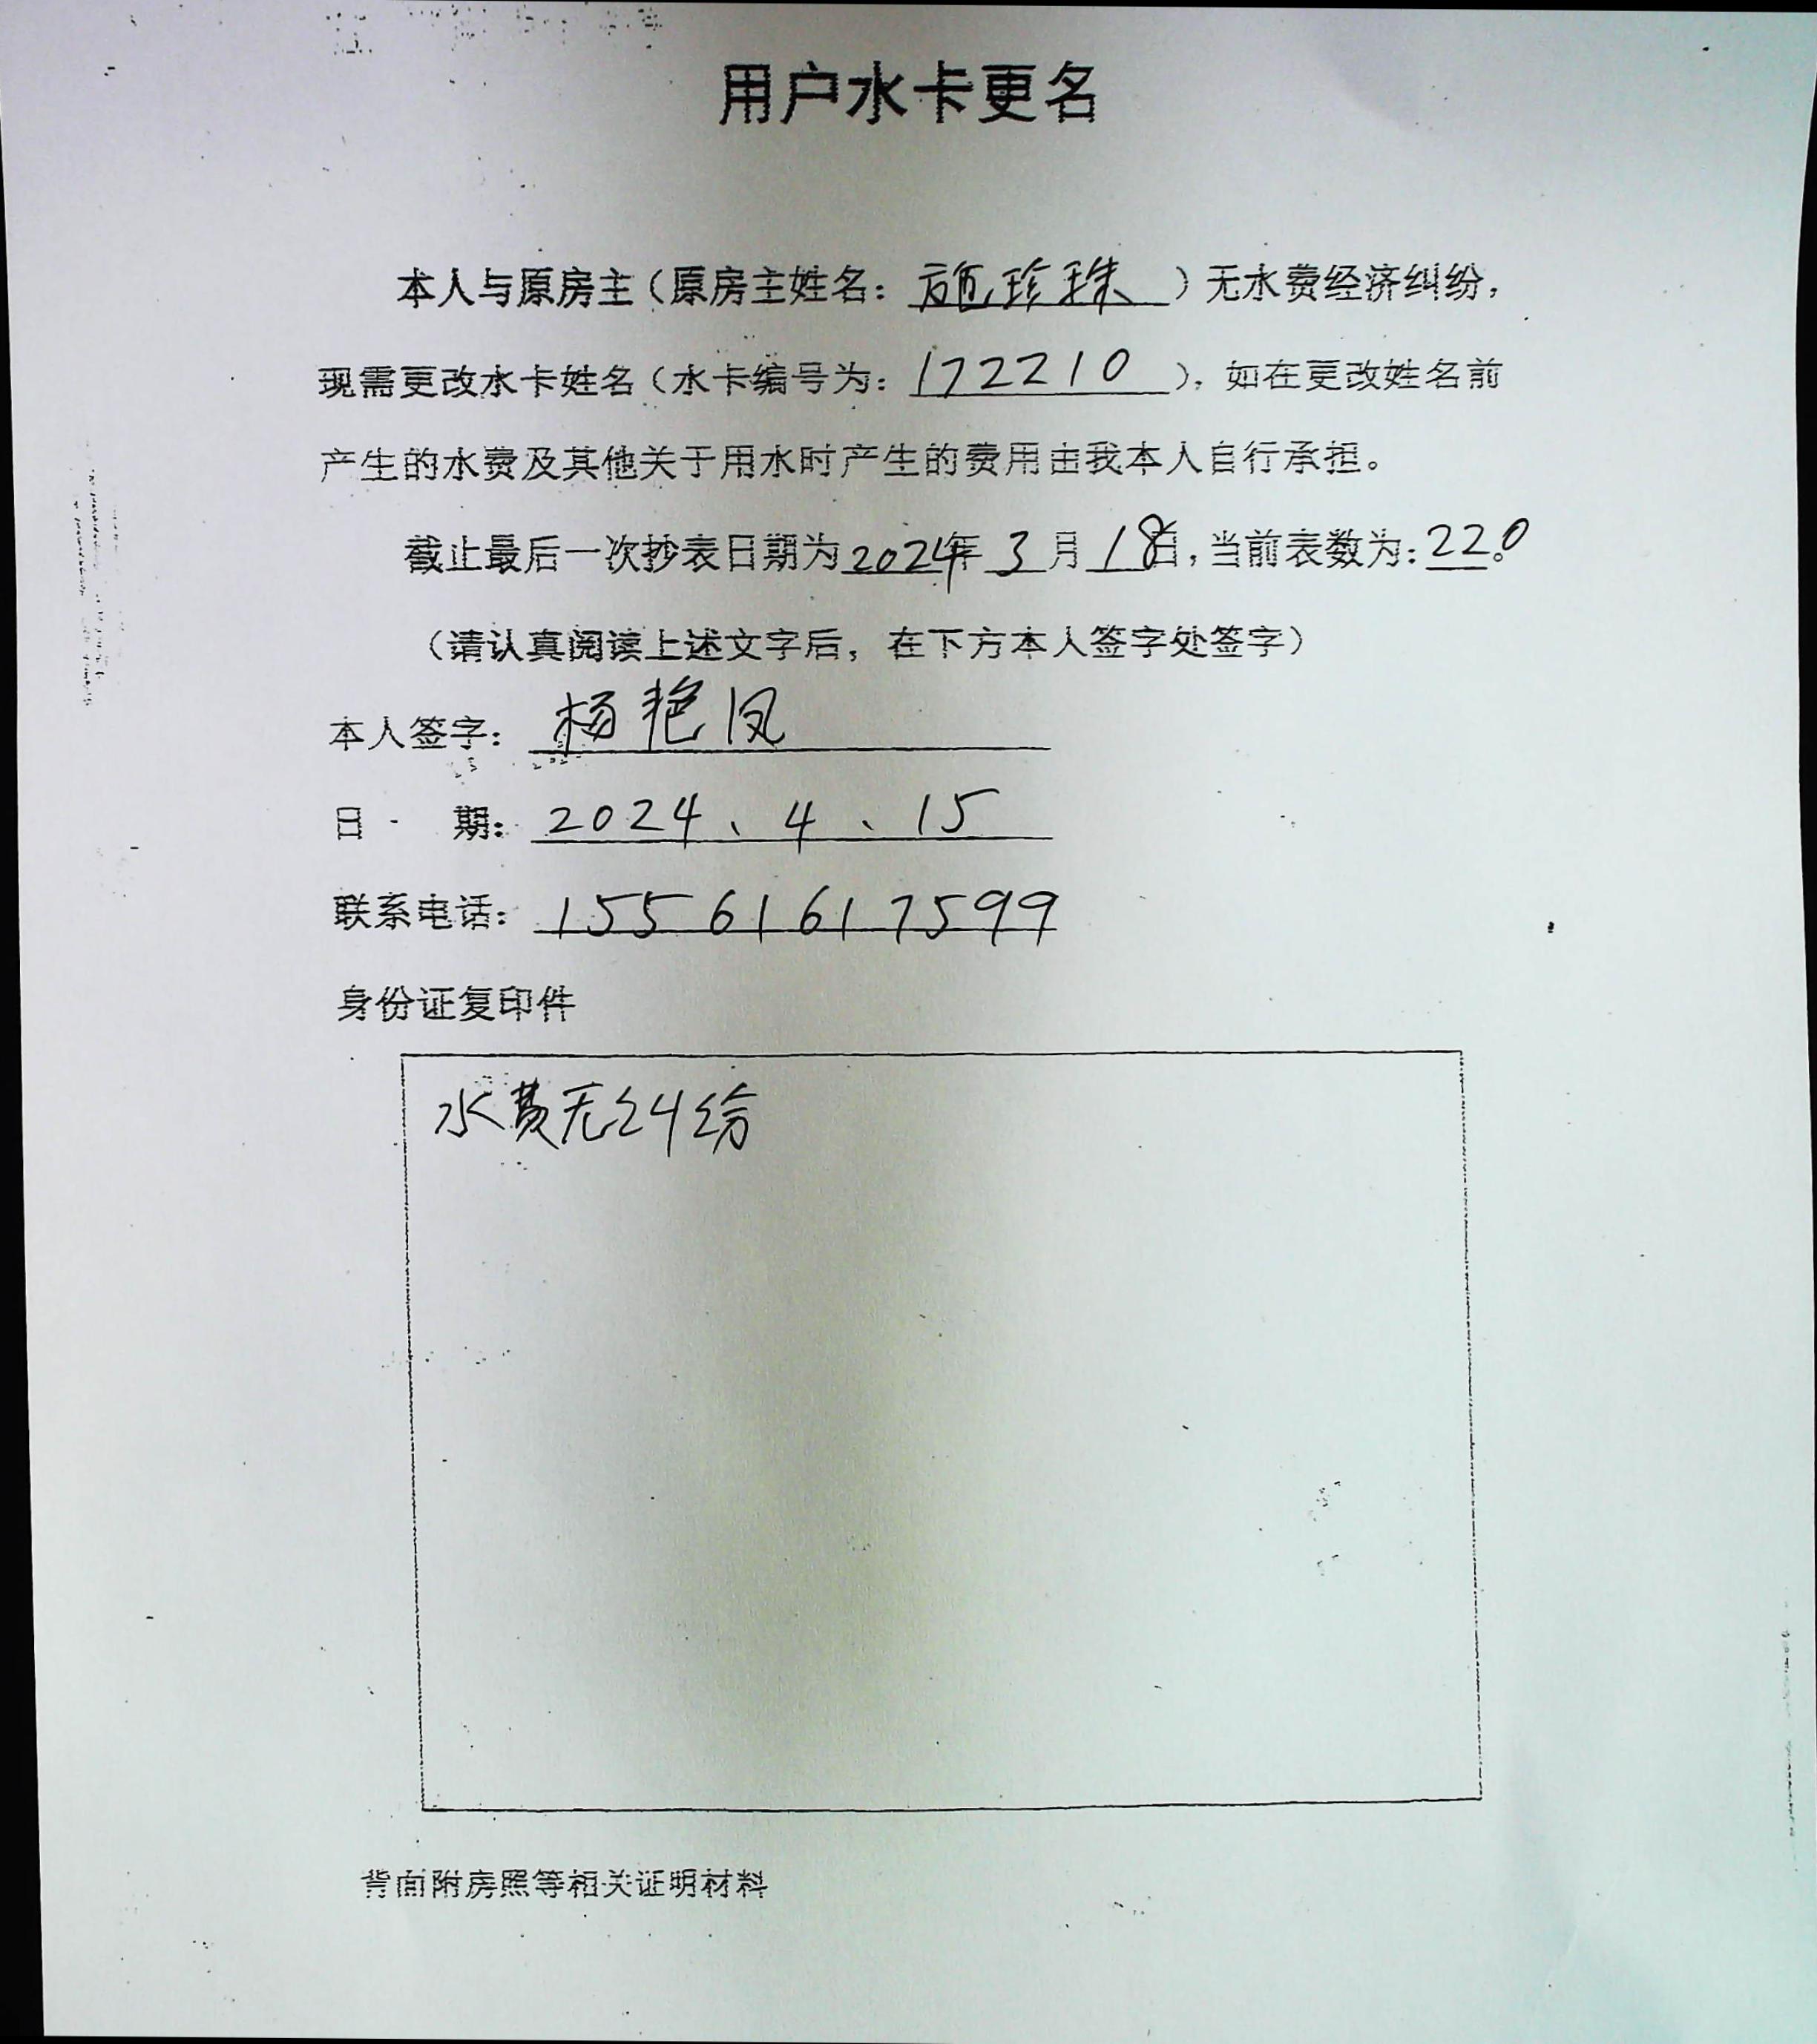 用户水卡更名
本人与原房主（原房主姓名：施珍珠）无水费经济纠纷，
现需更改水卡姓名（水卡编号为：172210），如在更改姓名前
产生的水费及其他关于用水时产生的费用由我本人自行承担。
截止最后一次抄表日期为2024年3月18日，当前表数为：220。
（请认真阅读上述文字后，在下方本人签字处签字）
本人签字：杨艳凤
日 期：2024、4、15
联系电话：15561617599
身份证复印件
水费无纠纷
背面附房照等相关证明材料